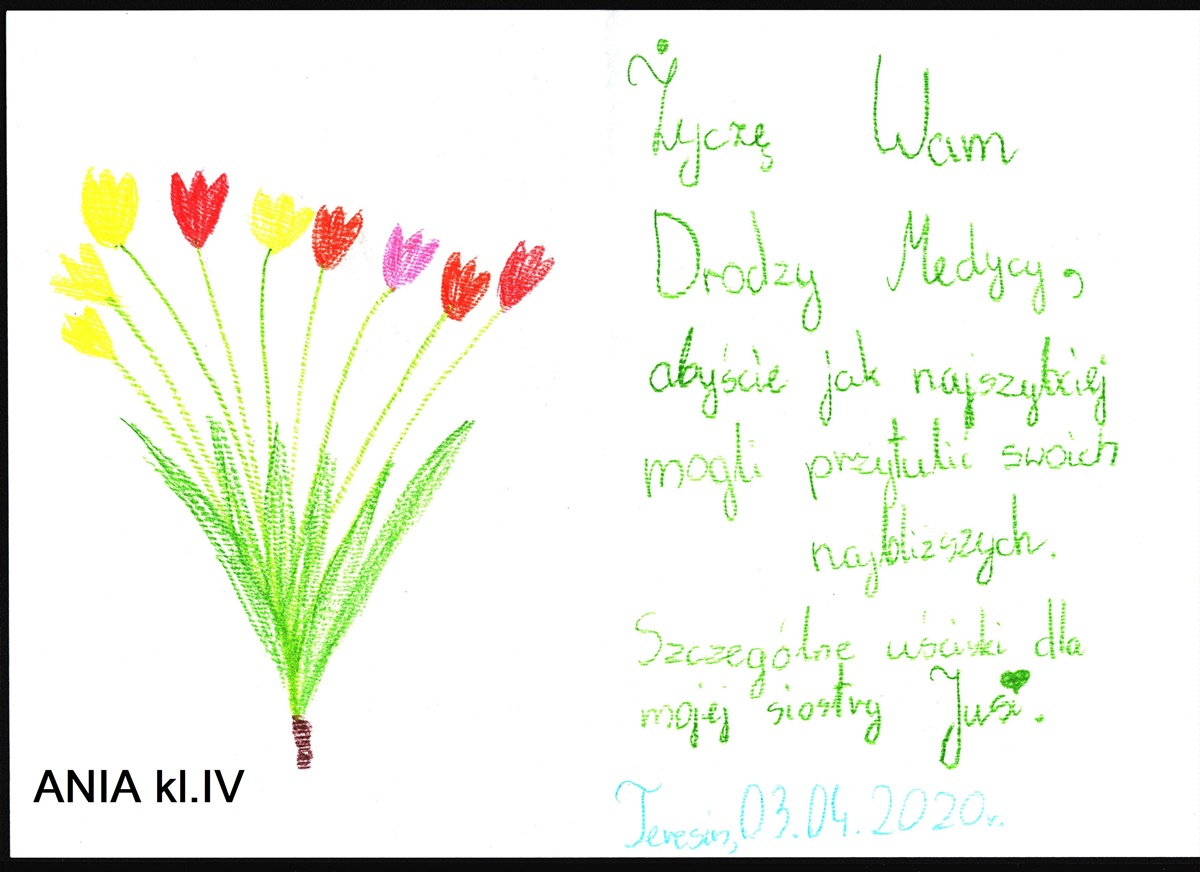 Życzę Wam
Drodzy Medycy,
abyście jak najszybciej
mogli przytulić swoich
najbliższych.
Szczególne uściski dla
mojej siostry Jusi.
Teresin, 03.04.2020r.
ANIA kl.IV